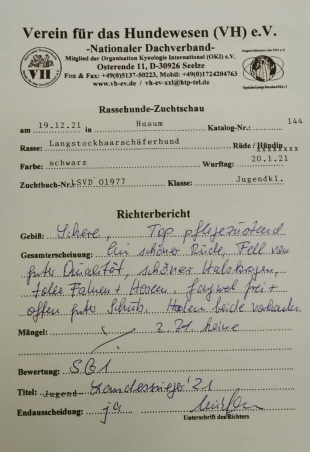 Verein für das Hundewesen (VH) e.V.
-Nationaler Dachverband-
Mitglied der Organisation Kynologie International (OKI) e.V.
Osterende 11, D-30926 Seelze
Fon & Fax: +49(0)5137-50223, Mobil: +49(0)1724204763
www.vh-ev.de / vh-ev-xxl@htp-tel.de
VH
Rassehunde-Zuchtschau
am 19.12.21 in Husum Katalog-Nr.: 144
Rasse: Langstockhaarschäferhund Rüde / Hündin xxxxxxx
Farbe: schwarz Wurftag: 20.1.21
Zuchtbuch-Nr.: LSVD 01977 Klasse: Jugendkl.
Richterbericht
Gebiß: Schere, Top pflegezustand
Gesamterscheinung: Ein schöner Rüde, Fell von
guter Qualität, schöner Halskragen,
tolle Fahnen + Hosen, Gangwerk frei +
offen guter Schub. Hoden beide vorhanden
Mängel: z. Zt. keine
Bewertung: SG1
Titel: Jugend- Landessieger '21
Endausscheidung: ja
Unterschrift des Richters